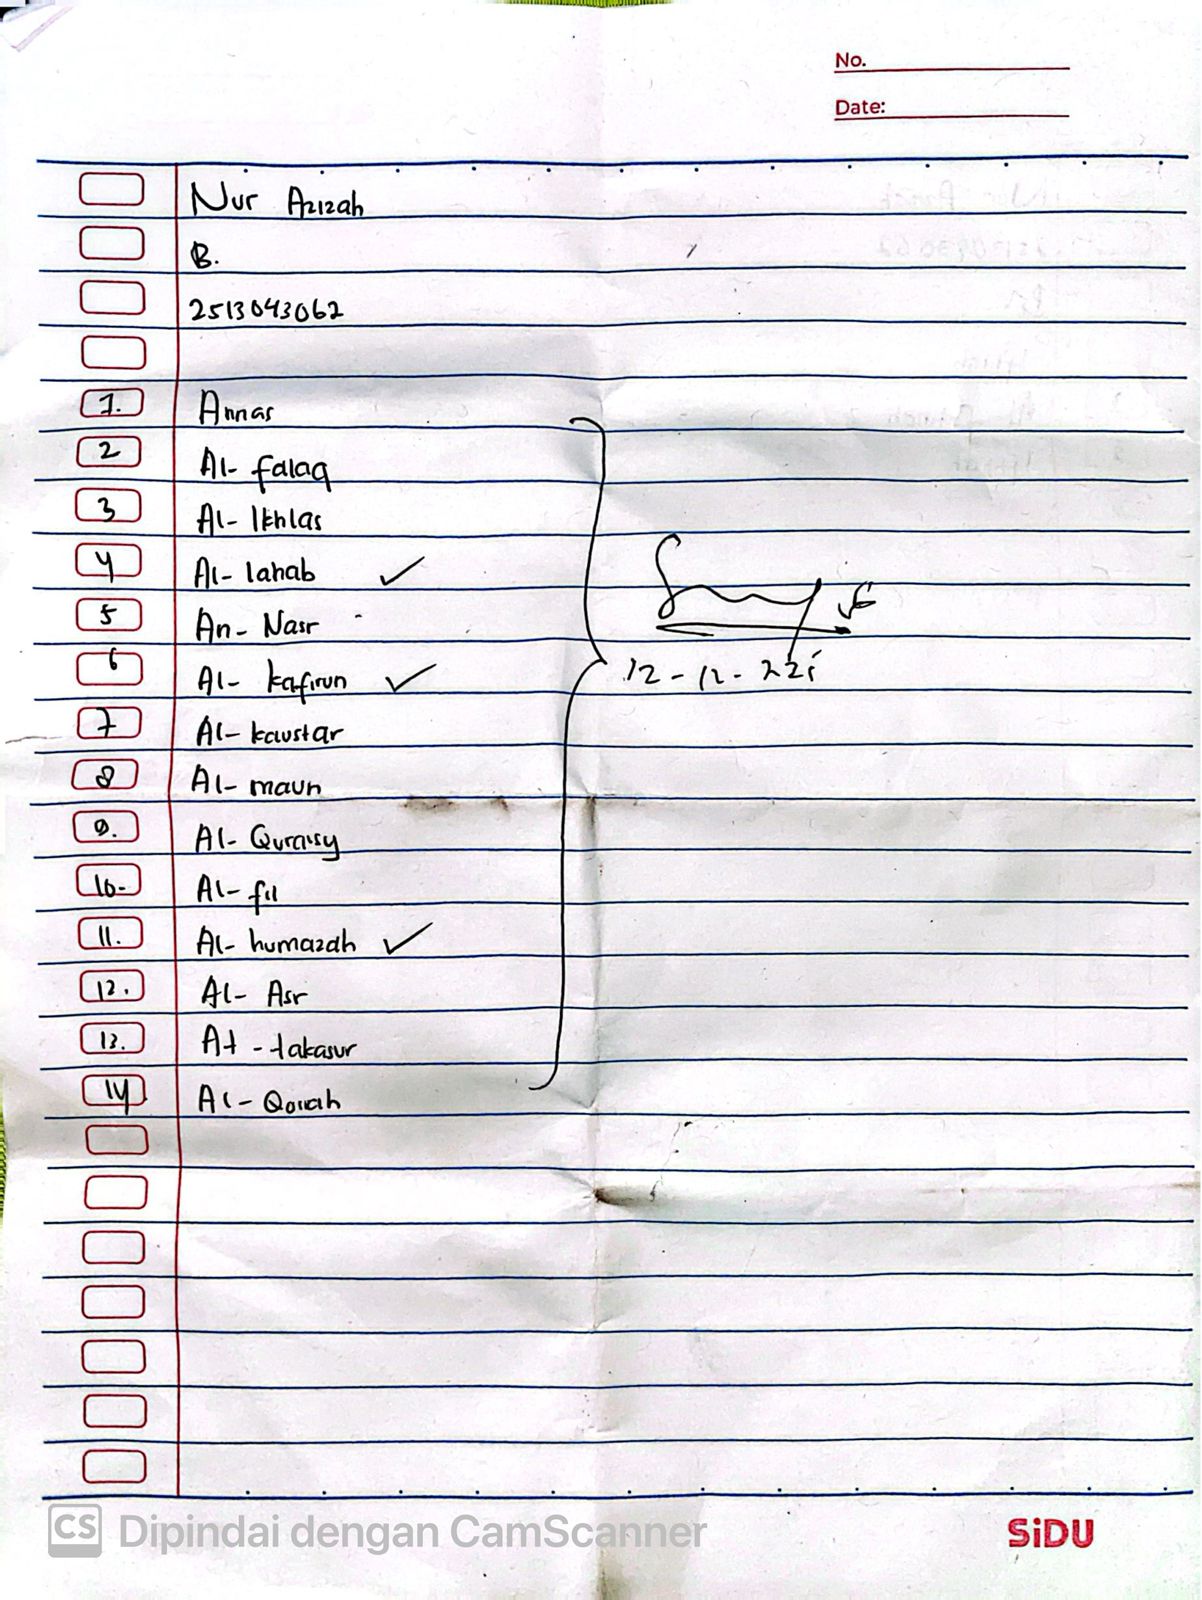 No.
Date:
Nur Azizah
B.
2513043062
1. Annas
2 Al- falaq
3 Al- Ikhlas
4 Al- lahab ✓
5 An- Nasr
6 Al- kafirun ✓
12-12-
7 Al- kaustar
8 Al- maun
9. Al- Quraisy
10. Al- fil
11. Al- humazah ✓
12. Al- Asr
13. At - takasur
14 Al-
CS Dipindai dengan CamScanner
SiDU